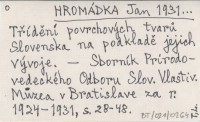 o
HROMÁDKA Jan 1931...
Třídění povrchových tvarů
Slovenska na podkladě jejich
vývoje. — Sborník Přírodo-
vedeckého Odboru Slov. Vlastiv.
Múzea v Bratislave za r.
1924-1931, s. 28-48.